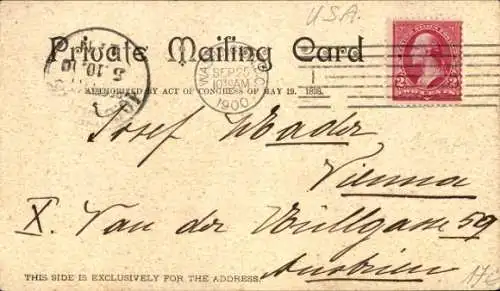 U.S.A.
Private Mailing Card
AUTHORIZED BY ACT OF CONGRESS OF MAY 19, 1898.
SEP 25
1030AM
1900
2 2
TWO CENTS
5 10
Josef Mader
Vienna
X. Van der Nüllgasse 59
Austria
THIS SIDE IS EXCLUSIVELY FOR THE ADDRESS.